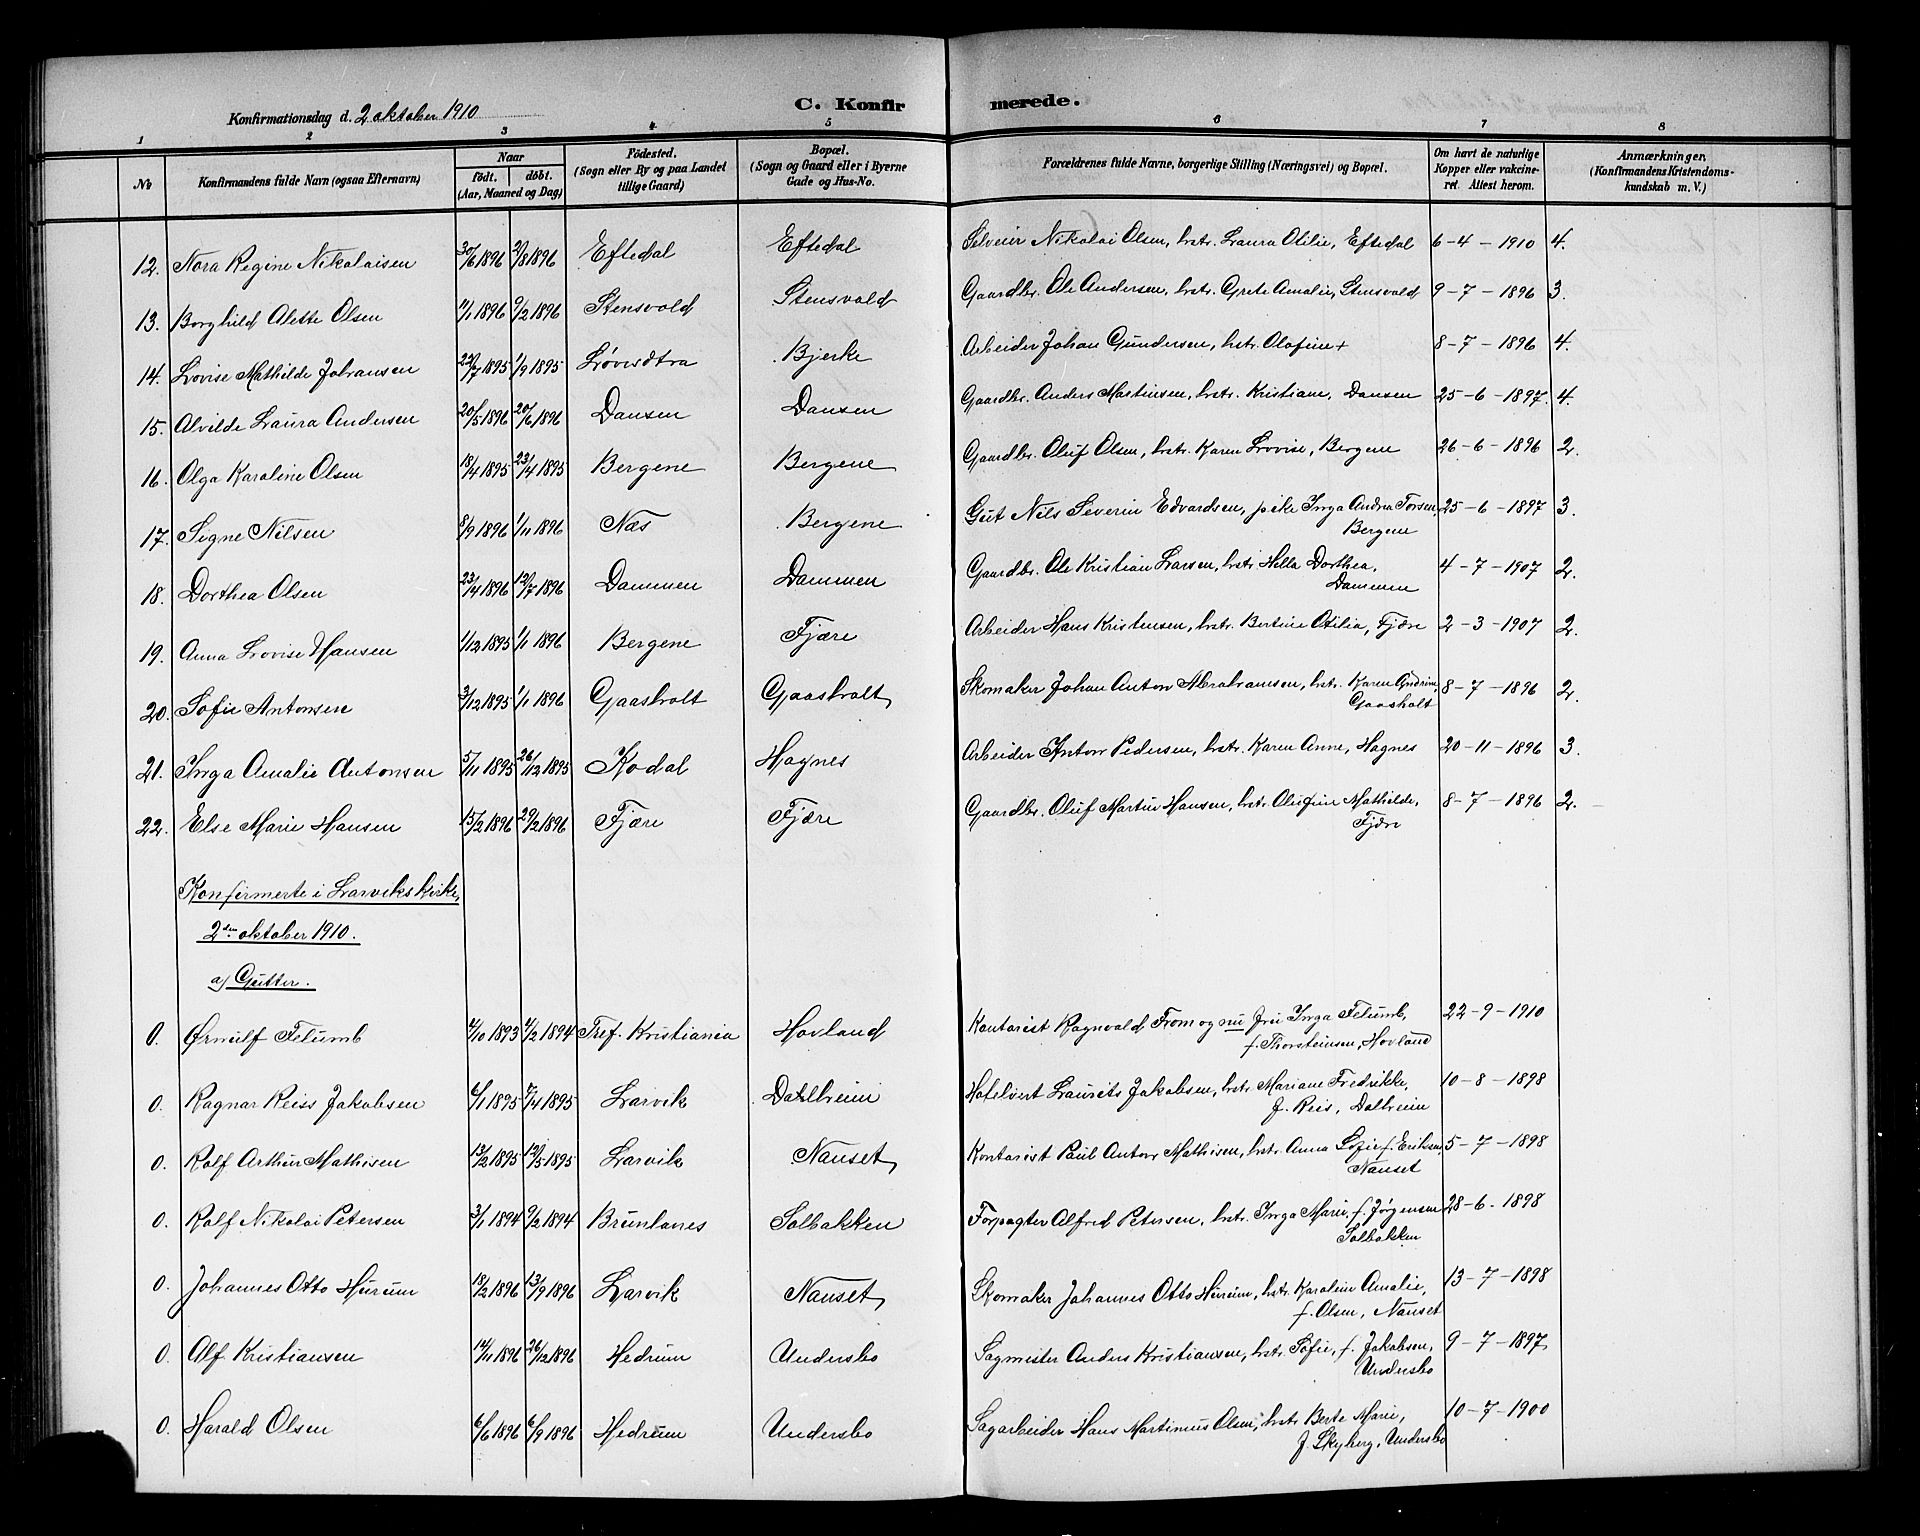 Konfirmationsdag d. 2 oktober 1910
C. Konfirmerede.
1 2 3 4 5 6 7 8
No
Konfirmandens fulde Navn (ogsaa Efternavn)
Naar
født. døbt.
(Aar, Maaned og Dag)
Fødested.
(Sogn eller By og paa Landet
tillige Gaard)
Bopæl.
(Sogn og Gaard eller i Byerne
Gade og Hus-No.
Forældrenes fulde Navne, borgerlige Stilling (Næringsvei) og Bopæl.
Om havt de naturlige
Kopper eller vakcine-
ret. Attest herom.
Anmærkninger.
(Konfirmandens Kristendoms-
kundskab m. V.)
12. Nora Regine Nikolaisen 30/6 1896 2/8 1896 Eftedal Eftedal Selveier Nikolai Olsen, hstr. Laura Otilie, Eftedal 6-4-1910 4.
13. Borghild Alette Olsen 11/1 1896 9/2 1896 Stensvold Stensvold Gaardbr. Ole Andersen, hstr. Grete Amalie, Stensvold 9-7-1896 3.
14. Lovise Mathilde Johansen 22/7 1895 1/9 1895 Bjerke Arbeider Johan Gundersen, hstr. Olafine + 8-7-1896 4.
15. Alvilde Laura Andersen 20/5 1896 20/6 1896 Dansen Dansen Gaardbr. Anders Martinsen, hstr. Kristiane, Dansen 25-6-1897. 4.
16. Olga Karoline Olsen 18/4 1895 23/4 1895 Bergene Bergene Gaardbr. Oluf Olsen, hstr. Karen Lovise, Bergene 26-6-1896 2.
17. Signe Nilsen 8/9 1896 1/11 1896 Næs Bergene Gut Nils Severin Edvardsen, pike Inga Andrea Torsen, 25-6-1897 3.
Bergene
18. Dorthea Olsen 23/4 1896 12/7 1896 Dammen Dammen Gaardbr. Ole Kristian Larsen, hstr. Hella Dorthea, 4-7-1907 2.
Dammen
19. Anna Lovise Hansen 1/12 1895 1/1 1896 Bergene Fjære Arbeider Hans Kristensen, hstr. Bertine Otilia, Fjære 2-3-1907 2.
20. Sofie Antonsen 3/12 1895 1/1 1896 Gaasholt Gaasholt Skomaker Johan Anton Abrahamsen, hstr. Karen Andrine, 8-7-1896 2.
Gaasholt
21. Inga Amalie Antonsen 5/11 1895 26/12 1895 Kodal Hagnes Arbeider Anton Pedersen, hstr. Karen Anne, Hagnes 20-11-1896 3.
22. Else Marie Hansen 15/2 1896 29/2 1896 Fjære Fjære Gaardbr. Oluf Martin Hansen, hstr. Olufine Mathilde, 8-7-1896 2.
Fjære
Konfirmerte i Larviks kirke,
2den oktober 1910.
a) Gutter.
0. Ørnulf Felumb 4/10 1893 4/2 1894 Tref. Kristiania Hovland Kontorist Ragnvald From og nu fru Inga Felumb, 22-9-1910
f. Thorsteinsen, Hovland
0. Ragnar Reiss Jakobsen 6/1 1895 7/4 1895 Larvik Dalheim Hotelvert Laurits Jakobsen, hstr. Mariane Fredrikke, 10-8-1898
f. Reis, Dalheim
0. Rolf Arthur Mathisen 13/2 1895 12/5 1895 Larvik Nanset Kontorist Paul Anton Mathisen, hstr. Anna Sofie f. Eriksen, 5-7-1898
Nanset
0. Rolf Nikolai Petersen 3/1 1894 9/2 1894 Brunlanes Solbakken Forpagter Alfred Petersen, hstr. Inga Marie, f. Jørgensen 28-6-1898
Solbakken
0. Johannes Otto Hurum 18/2 1896 13/9 1896 Larvik Nanset Skomaker Johannes Otto Hurum, hstr. Karoline Amalie, 13-7-1898
f. Olsen, Nanset
0. Alf Kristiansen 14/11 1896 26/12 1896 Hedrum Undersbo Sagmester Anders Kristiansen, hstr. Sofie, f. Jakobsen, 9-7-1897
Undersbo
0. Harald Olsen 6/6 1896 6/9 1896 Hedrum Undersbo Sagarbeider Hans Martinius Olsen, hstr. Berte Marie, 10-7-1900
f. Skyberg, Undersbo